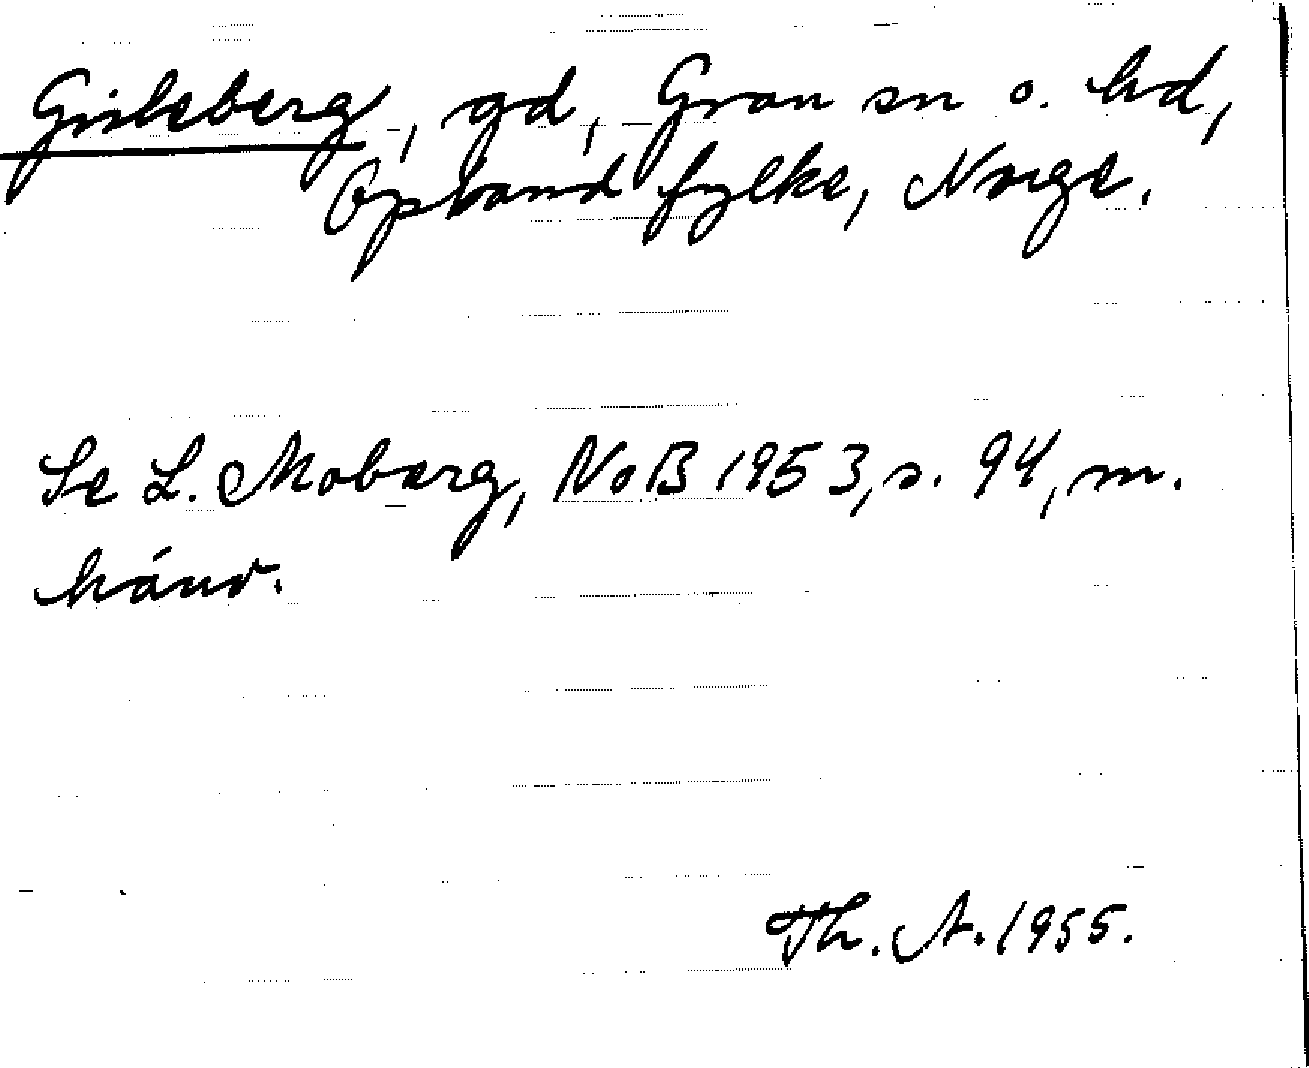 Gilsberg, gd, Gran sn o. hd,
Opland fylke, Norge.
Se L. Moberg, NoB 1953, s. 94, m.
hänv.
Th. A. 1955.